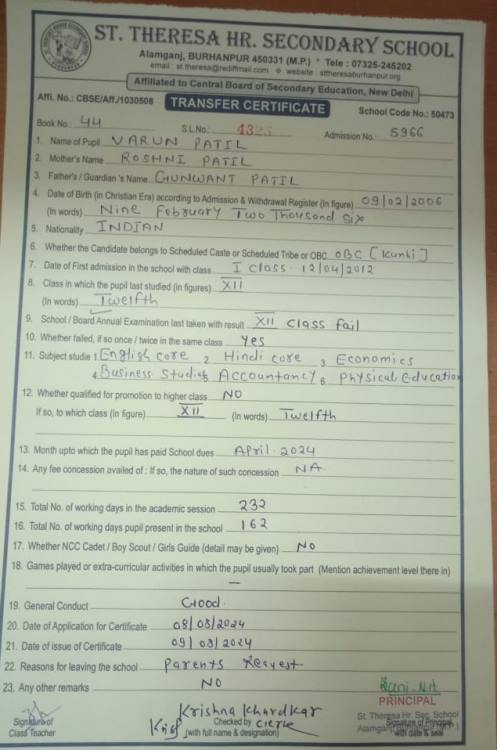 ST. THERESA HR. SECONDARY SCHOOL
Alamganj, BURHANPUR 450331 (M.P.) * Tele : 07325-245202
email : st.theresa@rediffmail.com ✧ website : sttheresaburhanpur.org
Affiliated to Central Board of Secondary Education, New Delhi
Affi. No.: CBSE/Aff./1030508 TRANSFER CERTIFICATE School Code No.: 50473
Book No.: 44 S.L.No.: Admission No.: 5966
1. Name of Pupil VARUN PATIL
2. Mother's Name ROSHNI PATIL
3. Father's / Guardian's Name GUNWANT PATIL
4. Date of Birth (in Christian Era) according to Admission & Withdrawal Register (In figure) 09/02/2006
(In words) Nine February Two Thousand six
5. Nationality INDIAN
6. Whether the Candidate belongs to Scheduled Caste or Scheduled Tribe or OBC OBC [Kunbi]
7. Date of First admission in the school with class I class. 12/04/2012
8. Class in which the pupil last studied (in figures) XII
(In words) Twelfth
9. School / Board Annual Examination last taken with result XII class fail
10. Whether failed, if so once / twice in the same class yes
11. Subject studie 1. English core 2 Hindi core 3 Economics
4. Business Studies Accountancy 6 Physical Education
12. Whether qualified for promotion to higher class NO
If so, to which class (In figure) XII (In words) Twelfth
13. Month upto which the pupil has paid School dues April. 2024
14. Any fee concession availed of : If so, the nature of such concession NA
15. Total No. of working days in the academic session 232
16. Total No. of working days pupil present in the school 162
17. Whether NCC Cadet / Boy Scout / Girls Guide (detail may be given) NO
18. Games played or extra-curricular activities in which the pupil usually took part (Mention achievement level there in)
—
19. General Conduct Good.
20. Date of Application for Certificate 08/08/2024
21. Date of issue of Certificate 09/08/2024
22. Reasons for leaving the school Parents Reqest
23. Any other remarks NO
PRINCIPAL
Krishna Khardkar
St. Theresa Hr. Sec. School
Signature of Checked by Clerk Signature of Principal
Class Teacher (with full name & designation) with date & seal